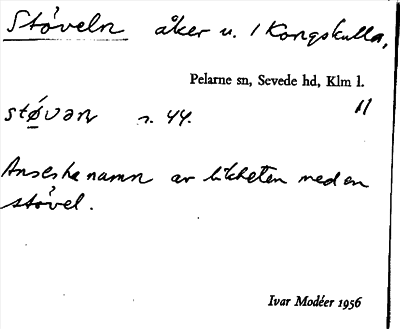 Stöveln åker u. 1 Kongskulla,
Pelarne sn, Sevede hd, Klm l.
11
stǿvən s. 44.
Anses ha namn av likheten med en
stövel.
Ivar Modéer 1956